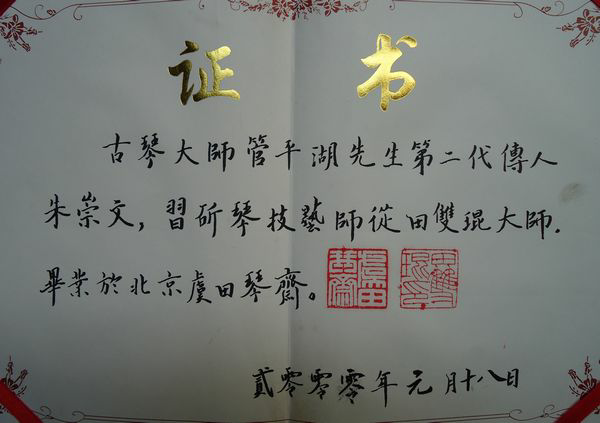 证书
古琴大師管平湖先生第二代傳人
朱崇文，習斫琴技藝師從田雙琨大師.
畢業於北京虞田琴齋。
貳零零零年元月十八日